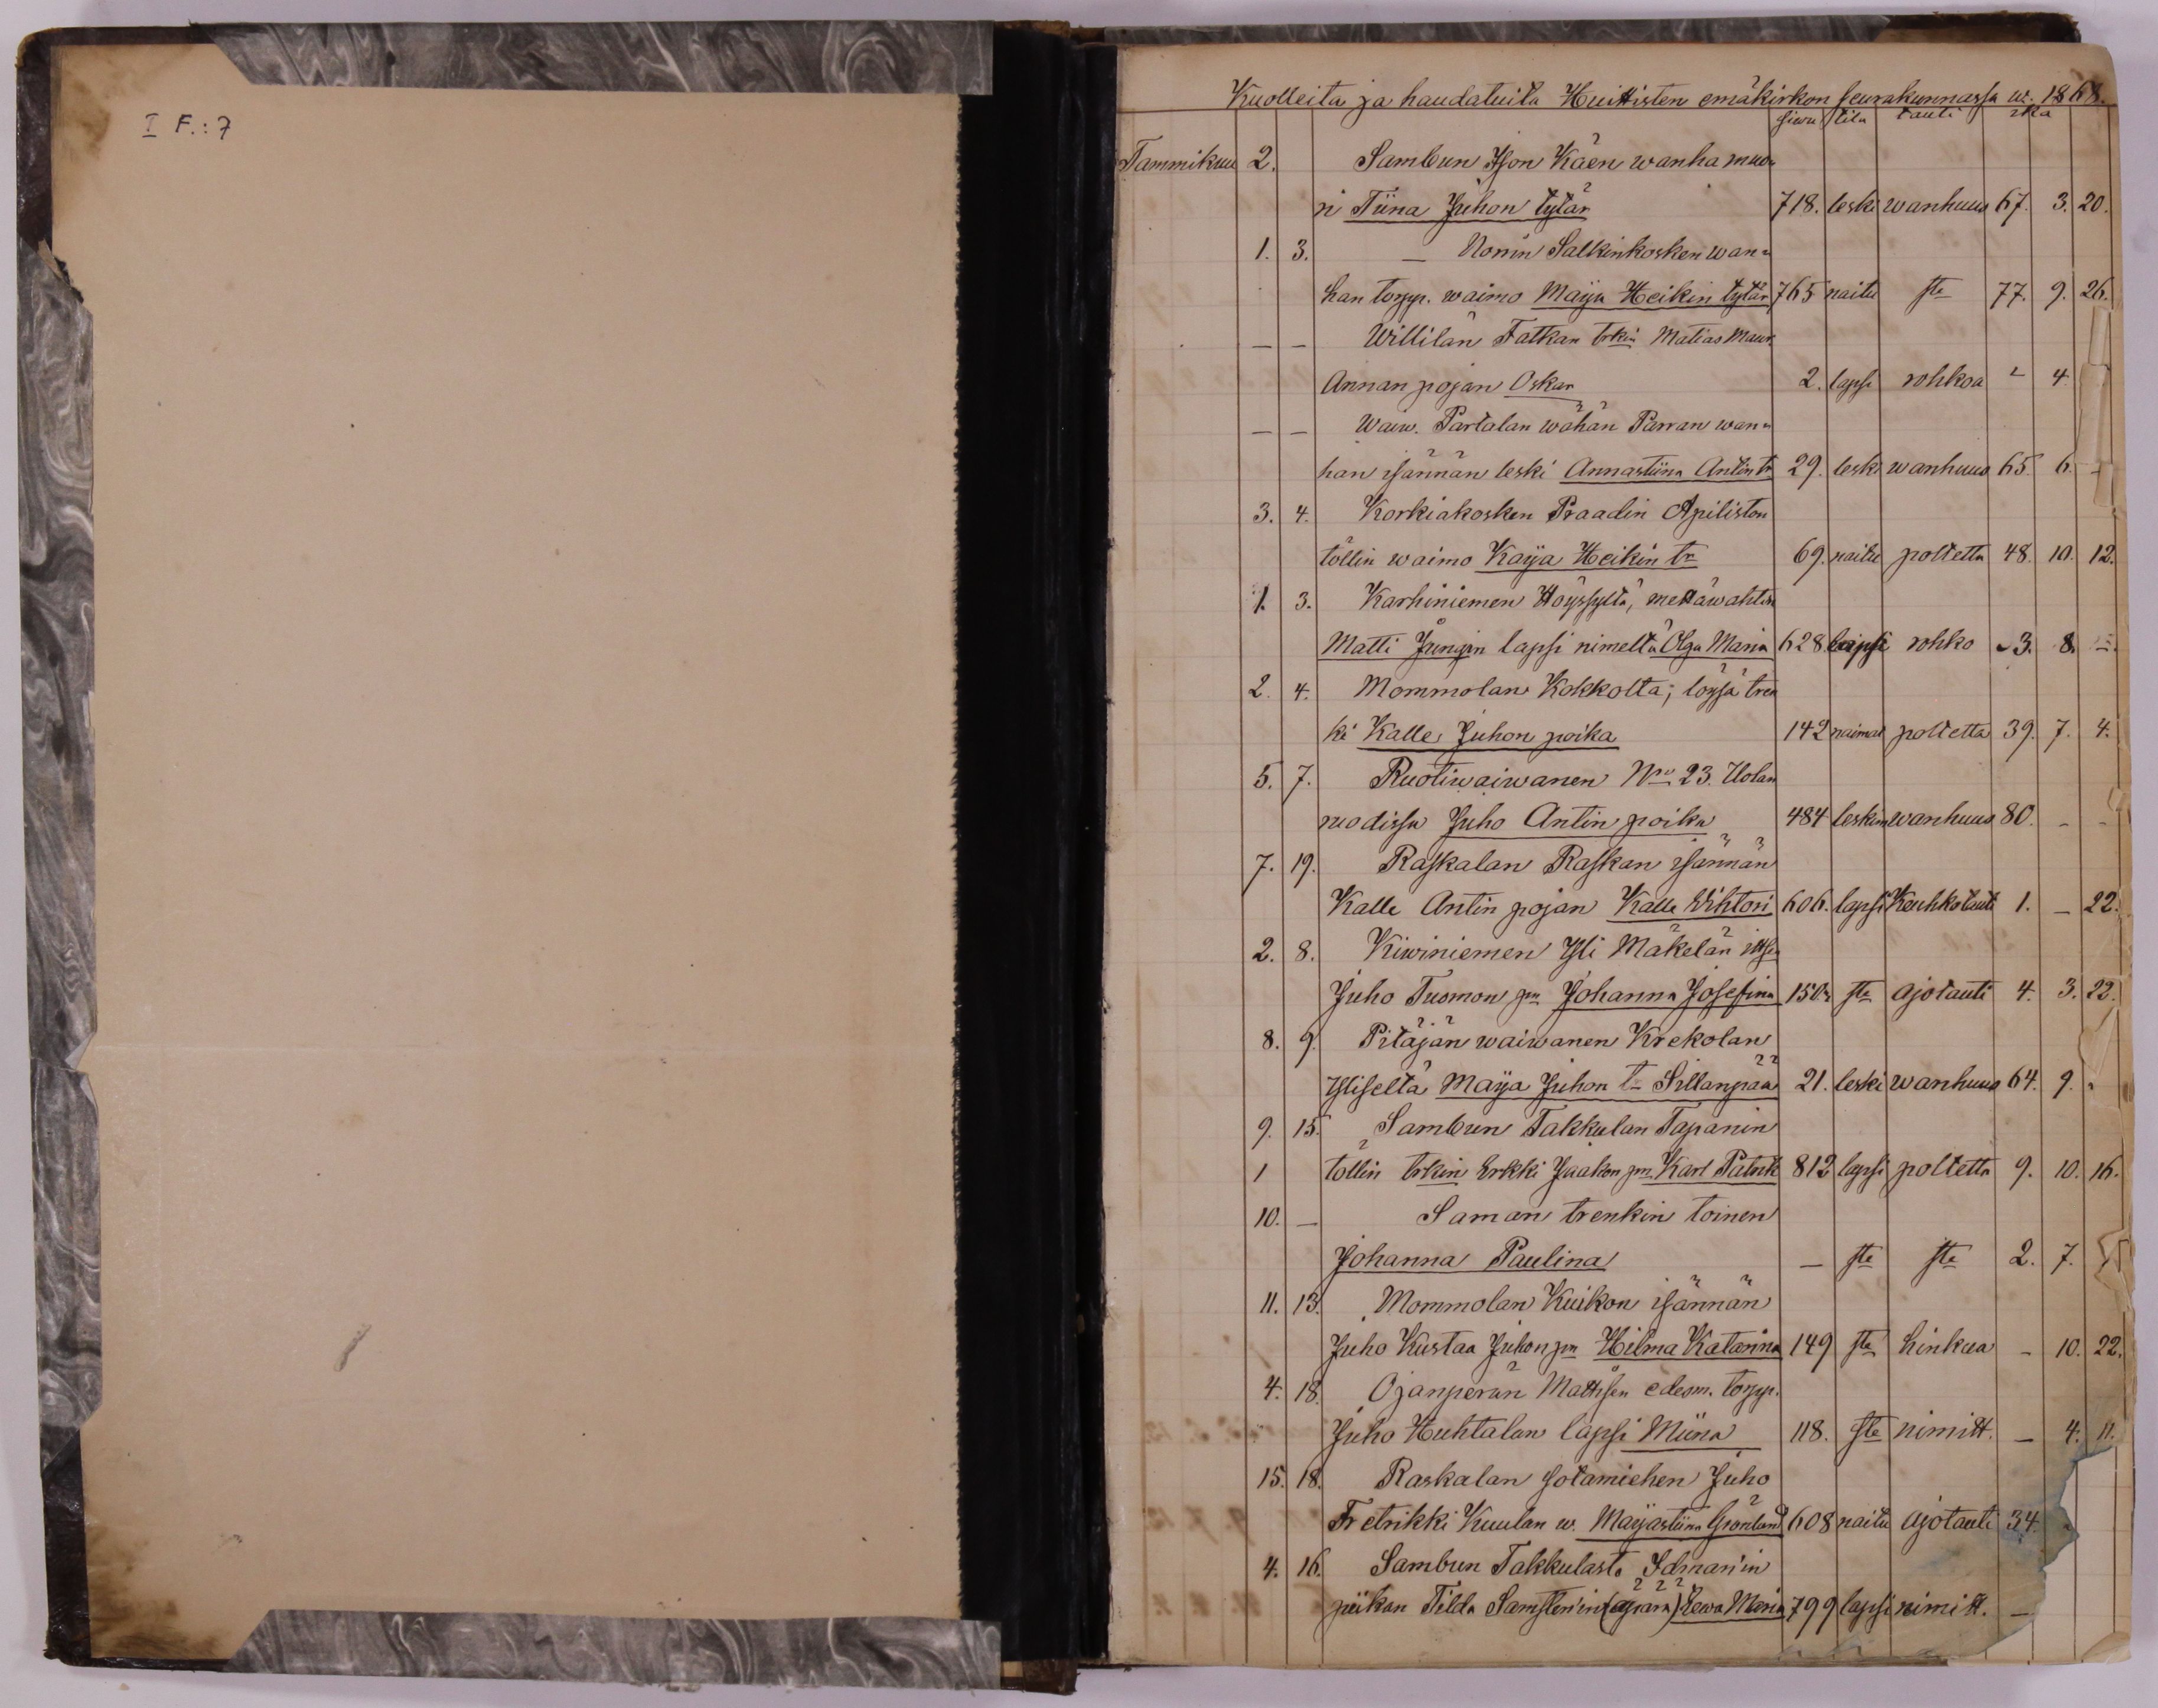 I F.: 7
Kuolleita ja haudatuita Huittisten emäkirkon seurakunnassa w. 1868.
siwu tila tauti ikä
Tammikuu 2. Sambun Ison Käen wanha muo-
ri Tiina Juhon tytär 718. leski wanhuus 67. 3. 20.
1. 3. — Nonin Sallinkosken wan-
han torpp. waimo Maija Heikin tytär 765 naitu ste 77. 9. 26.
— — Willilän Fatkan trkin Matias Maur.
Annan pojan Oskar 2. lapsi rohkoa - 4.
— — Waiw. Partalan wähän Parran wan-
han isännän leski Annastiina Antin tr 29. leski wanhuus 65 6. -
3. 4. Korkiakosken Praadin Apiliston
töllin waimo Kaija Heikin tr 69. naitu poltetta 48. 10. 12.
1. 3. Karhiniemen Höyssyltä, mettäwahtin
Matti Jungin lapsi nimeltä Olga Maria 628 lapsi rohko 3. 8.
2. 4. Mommolan Kokkolta; löysä tren
ki Kalle Juhon poika 142 naimat poltetta 39. 7. 4.
5. 7. Ruotiwaiwanen Nro 23. Uolan
ruodissa Juho Antin poika 484 leskin wanhuus 80. - -
7. 19. Raskalan Raskan isännän
Kalle Antin pojan Kalle Wihtori 606. lapsi Keuhkotauti 1. — 22.
2. 8. Kiwiniemen Yli Mäkelän
Juho Tuomon pn Johanna Josefina 150. ste ajotauti 4. 3. 22.
8. 9. Pitäjän waiwanen Krekolan
Yliseltä Maija Juhon t- Sillanpää 21. leski wanhuus 64. 9.
9. 15. Sambun Takkulan Tapanin
1 töllin trkin Erkki Jaakon pn Karl Patrik 812 lapsi poltetta 9. 10. 16.
10. — Saman trenkin toinen
Johanna Paulina — ste ste 2. 7.
11. 13. Mommolan Kuikon isännän
Juho Kustaa Juhon pn Hilma Katariina 149 ste hinkua - 10. 22.
4. 18. Ojanperän Mattisen edesm. torpp.
Juho Huhtalan lapsi Miina 118. ste nimitt. — 4. 11.
15. 18. Raskalan sotamiehen Juho
Fretrikki Kuulan w. Maijastiina Grönlund 608 naitu ajotauti 34.
4. 16. Sambun Takkulasta Idman'in
piikan Tilda Samsten'in (äpärä) Eewa Maria 799 lapsi nimitt. —